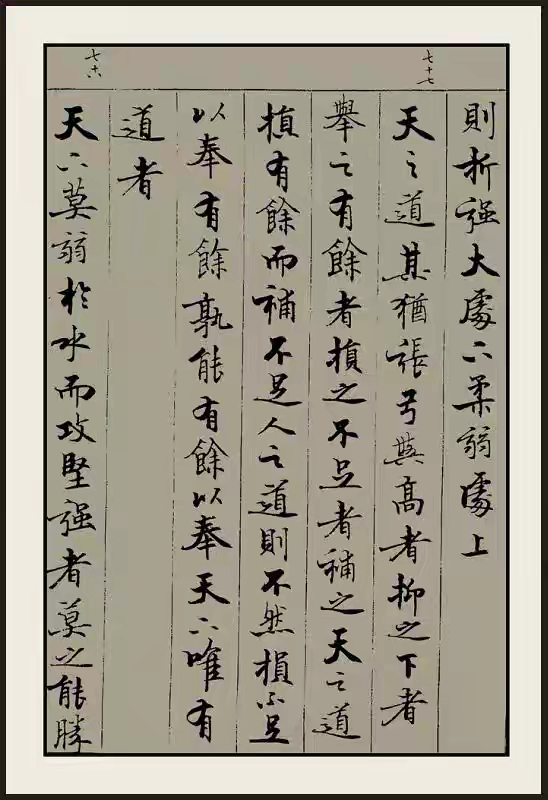 則折强大處下柔弱處上
七十七
天之道其猶張弓與高者抑之下者
舉之有餘者損之不足者補之天之道
損有餘而補不足人之道則不然損不足
以奉有餘孰能有餘以奉天下唯有
道者
七十八
天下莫弱於水而攻堅强者莫之能勝